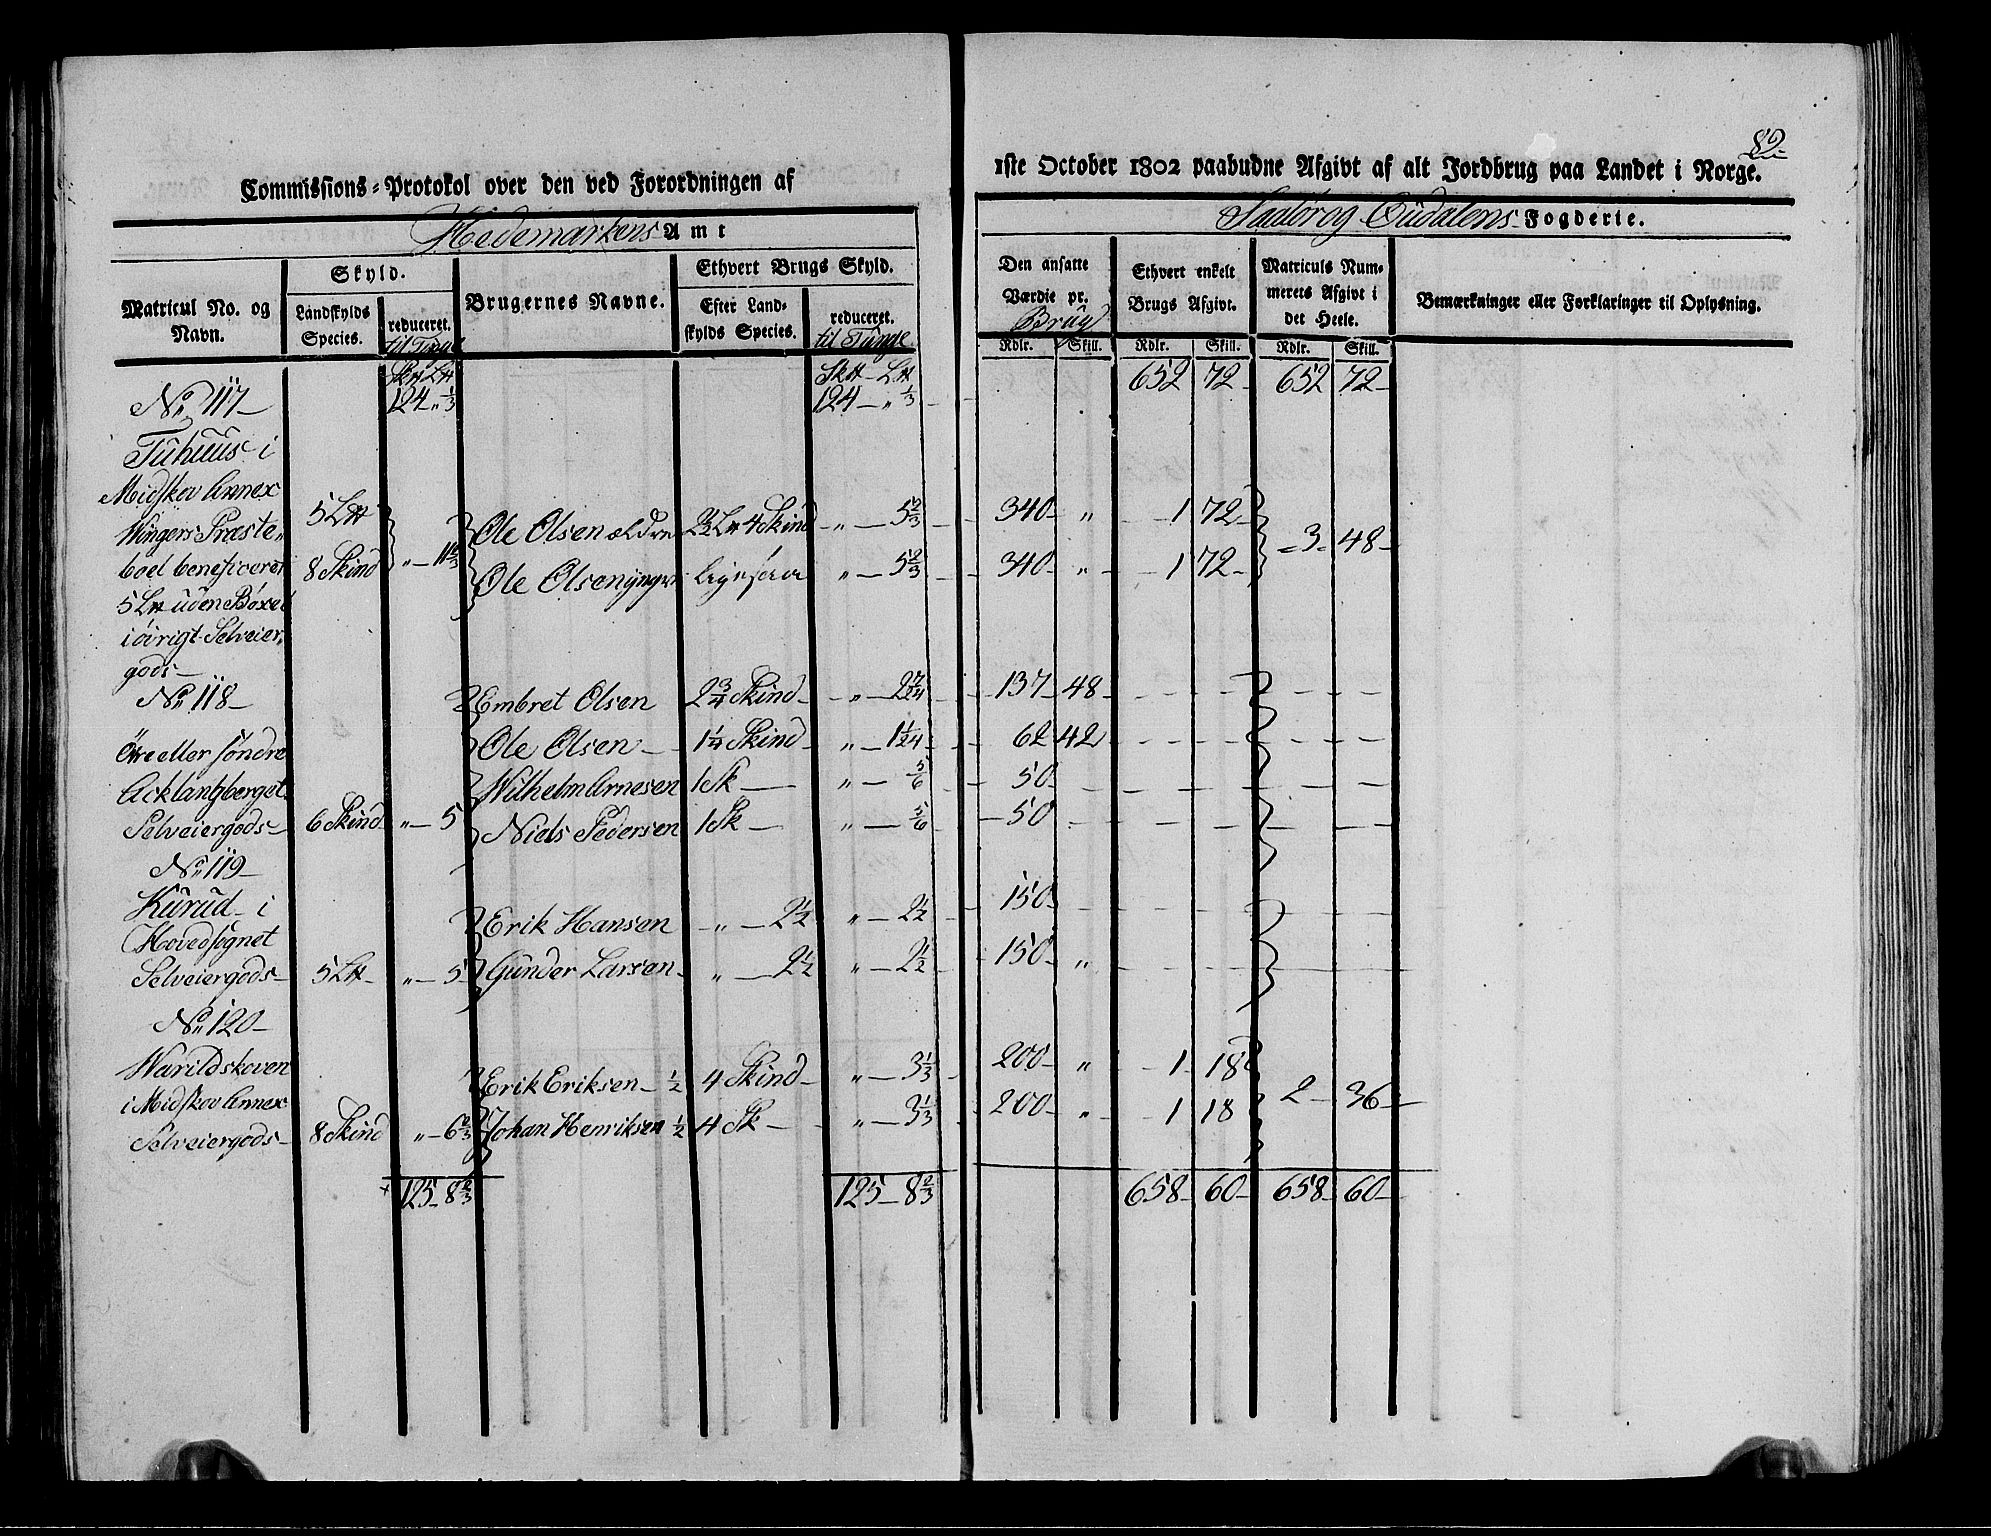 82
Commissions-Protokol over den ved Forordningen af
1ste October 1802 paabudne Afgivt af alt Jordbrug paa Landet i Norge.
Hedemarkens Amt
Soløer og Oudalens Fogderie.
Matricul No. og Navn.
Skyld.
Landskylds Species.
reduceret. til Tunge
Brugernes Navne.
Ethvert Brugs Skyld.
Efter Landskylds Species.
reduceret. til Tunge
Den ansatte Værdie pr. Brug
Ethvert enkelt Brugs Afgivt.
Matriculs Nummerets Afgivt i det Heele.
Bemærkninger eller Forklaringer til Oplysning.
Rdlr. Skill. Rdlr. Skill. Rdlr. Skill.
124 " 1/3 124 — " 1/3 652 72 652 72
No 117
Tuhuus i
Midskov Annex
Wingers Præste-
boel beneficeret
5 L℔ uden Bøxel
i øvrigt Selveier-
gods
5 L℔
8 Skind " — 11 2/3
Ole Olsen ældre 2½ L℔ 4 Skind " — 5 2/3 340 " 1 72
Ole Olsen yngre ligesaa " — 5 2/3 340 " 1 72
3 48
No 118
eller søndre
Acklangberget
Selveiergods 6 Skind " — 5
Embret Olsen 2 3/4 Skind " — 2 7/24 137 48
Ole Olsen 1 1/4 Skind " — 1 1/24 62 42
Wilhelm Arnesen 1 Sk " — 5/6 50
Niels Pedersen 1 Sk " — 5/6 50
No 119
Kurud i
Hovedsognet
Selveiergods 5 L℔ " — 5
Erik Hansen " — 2½ " — 2½ 150
Gunder Larsen " — 2½ " — 2½ 150 "
No 120
Warildskoven
i Midskov Annex
Selveiergods 8 Skind " — 6 2/3
Erik Eriksen ½ 4 Skind " — 3 1/3 200 " 1 18
Johan Henriksen ½ 4 Sk " — 3 1/3 200 " 1 18
2 36
125 8 2/3 125 8 2/3 658 60 658 60